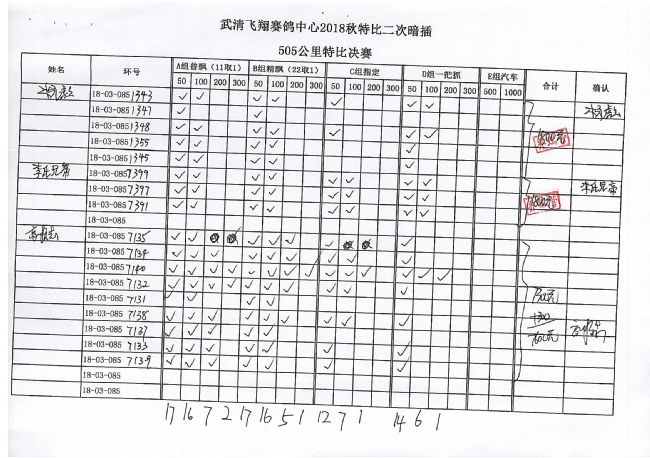 武清飞翔赛鸽中心2018秋特比二次暗插
505公里特比决赛
姓名 环号 A组普飘（11取1） B组精飘（22取1） C组指定 D组一把抓 E组汽车 合计 确认
50 100 200 300 50 100 200 300 50 100 200 300 50 100 200 300 500 1000
18-03-0851343 ✓ ✓ ✓ ✓ ✓ ✓ ✓
18-03-0851347 ✓ ✓
18-03-0851348 ✓ ✓ ✓ ✓ ✓ ✓ ✓
18-03-0851355 ✓ ✓ ✓ ✓
18-03-0851345 ✓ ✓ ✓ ✓
李氏兄弟 18-03-0857399 ✓ ✓ ✓ ✓ ✓ ✓ ✓ ✓
18-03-0857397 ✓ ✓ ✓ ✓ ✓ ✓ ✓ ✓ 李氏兄弟
18-03-0857391 ✓ ✓ ✓ ✓ ✓ ✓ ✓ ✓
18-03-085
18-03-0857135 ✓ ✓ ✓ ✓ ✓ ✓ ✓
18-03-0857134 ✓ ✓ ✓ ✓ ✓ ✓ ✓ ✓ ✓
18-03-0857140 ✓ ✓ ✓ ✓ ✓ ✓ ✓ ✓ ✓ ✓ ✓ ✓ ✓ ✓
18-03-0857132 ✓ ✓ ✓ ✓ ✓ ✓ ✓ ✓ ✓ ✓
18-03-0857131 ✓ ✓ ✓ ✓
18-03-0857138 ✓ ✓ ✓ ✓ ✓ ✓ ✓ ✓ ✓
18-03-0857137 ✓ ✓ ✓ ✓ ✓ ✓
18-03-0857133 ✓ ✓ ✓ ✓ ✓ ✓
18-03-0857139 ✓ ✓ ✓ ✓ ✓ ✓
18-03-085
18-03-085
17 16 7 2 17 16 5 1 12 7 1 14 6 1